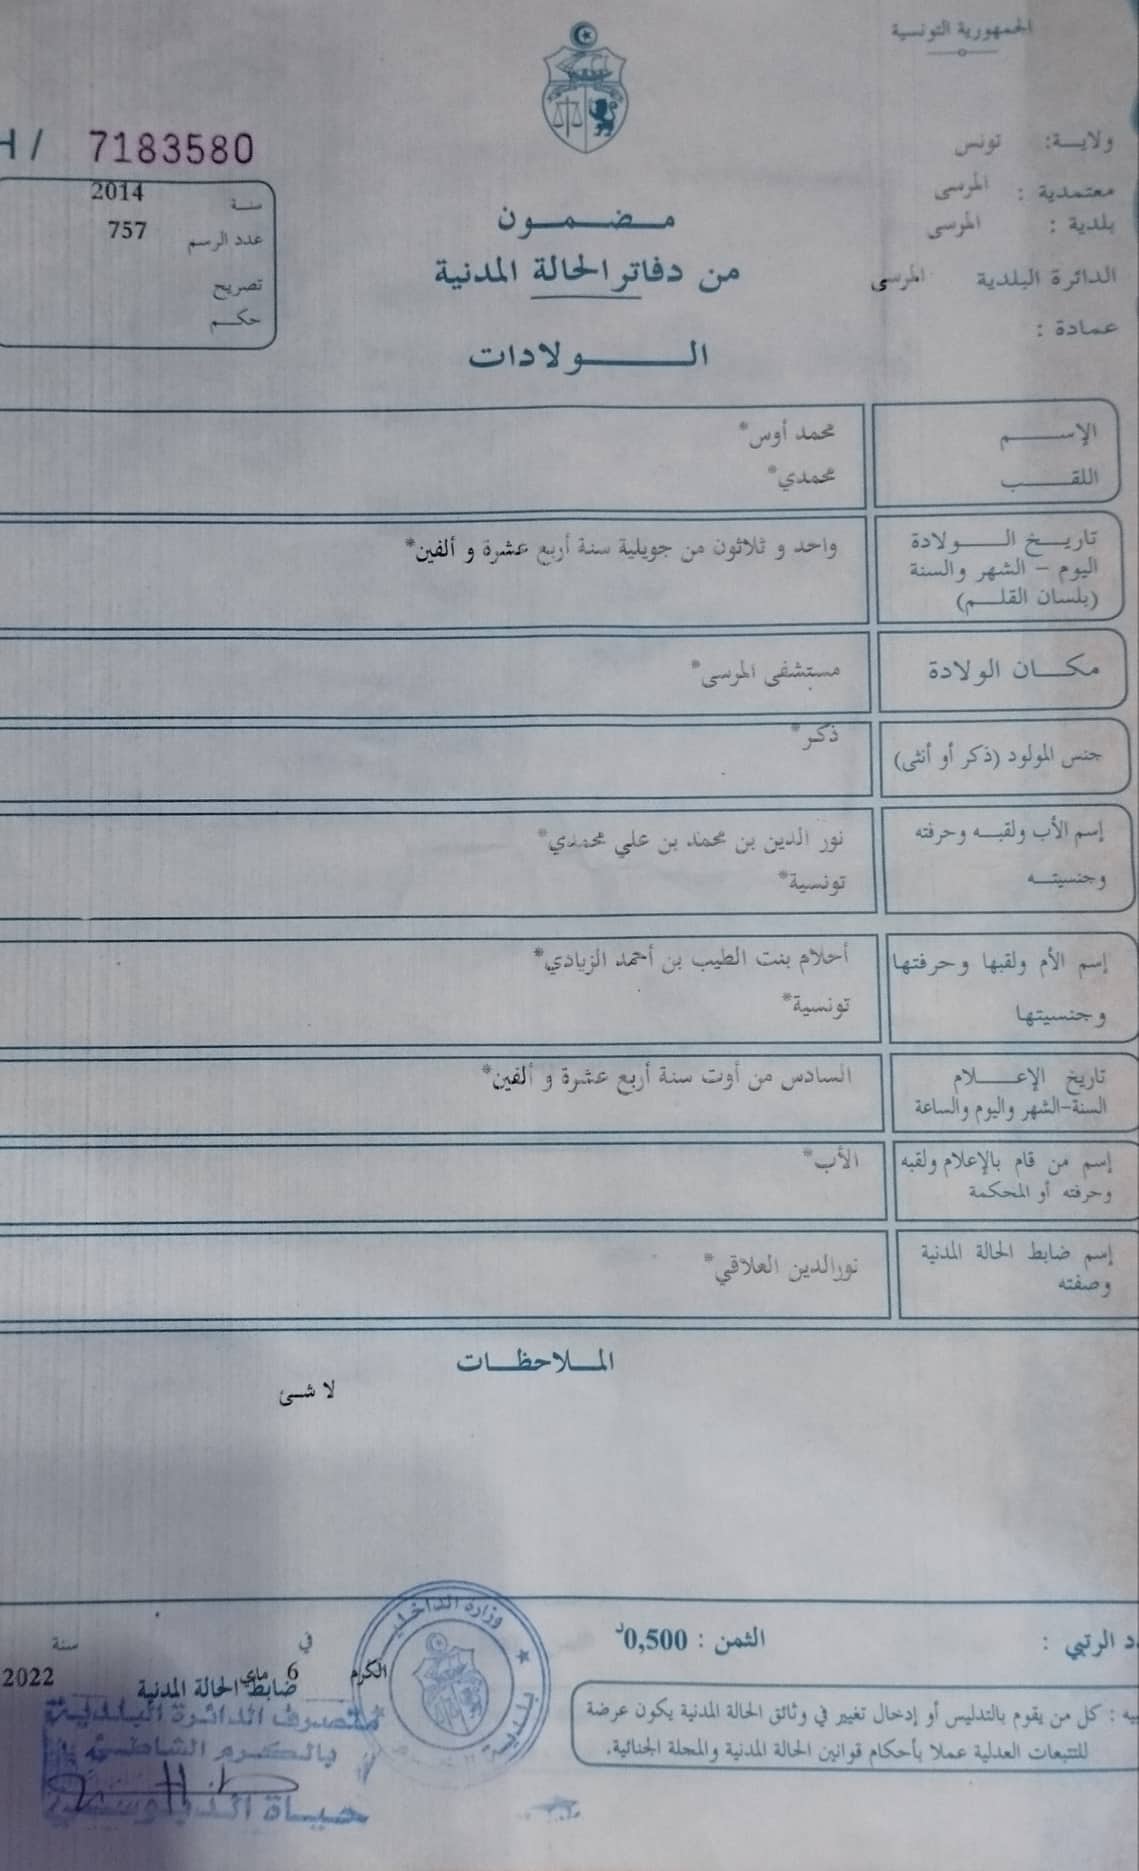 الجمهورية التونسية
H / 7183580
ولايـــة: تونس
معتمدية : المرسى
بلدية : المرسى
الدائرة البلدية المرسى
عمادة :
سنـة 2014
عدد الرسم 757
تصريح
حكــم
مــضــمــون
من دفاتر الحالة المدنية
الـــــولادات
الإســـــم محمد أوس*
اللقـــــب محمدي*
تاريــخ الـــــولادة واحد و ثلاثون من جويلية سنة أربع عشرة و ألفين*
اليوم - الشهر والسنة
(بلسان القلـــم)
مكـــان الولادة مستشفى المرسى*
جنس المولود (ذكر أو أنثى) ذكر*
إسم الأب ولقبــه وحرفته نور الدين بن محمد بن علي محمدي*
وجنسيتــه تونسية*
إسم الأم ولقبها وحرفتها أحلام بنت الطيب بن أحمد الزيادي*
وجنسيتها تونسية*
تاريخ الإعـــــلام السادس من أوت سنة أربع عشرة و ألفين*
السنة-الشهر واليوم والساعة
إسم من قام بالإعلام ولقبه الأب*
وحرفته أو المحكمة
إسم ضابط الحالة المدنية نورالدين العلاقي*
وصفته
الملاحظـــات
لا شـئ
د الرتبي :
الثمن : 0,500د
الكرم في 6 ماي سنة 2022
ضابط الحالة المدنية
يه : كل من يقوم بالتدليس أو إدخال تغيير في وثائق الحالة المدنية يكون عرضة
للتتبعات العدلية عملا بأحكام قوانين الحالة المدنية والمجلة الجنائية.
وزارة الداخلية
بلدية
متصرف الدائرة البلدية
بالكرم الشاطئ
حياة